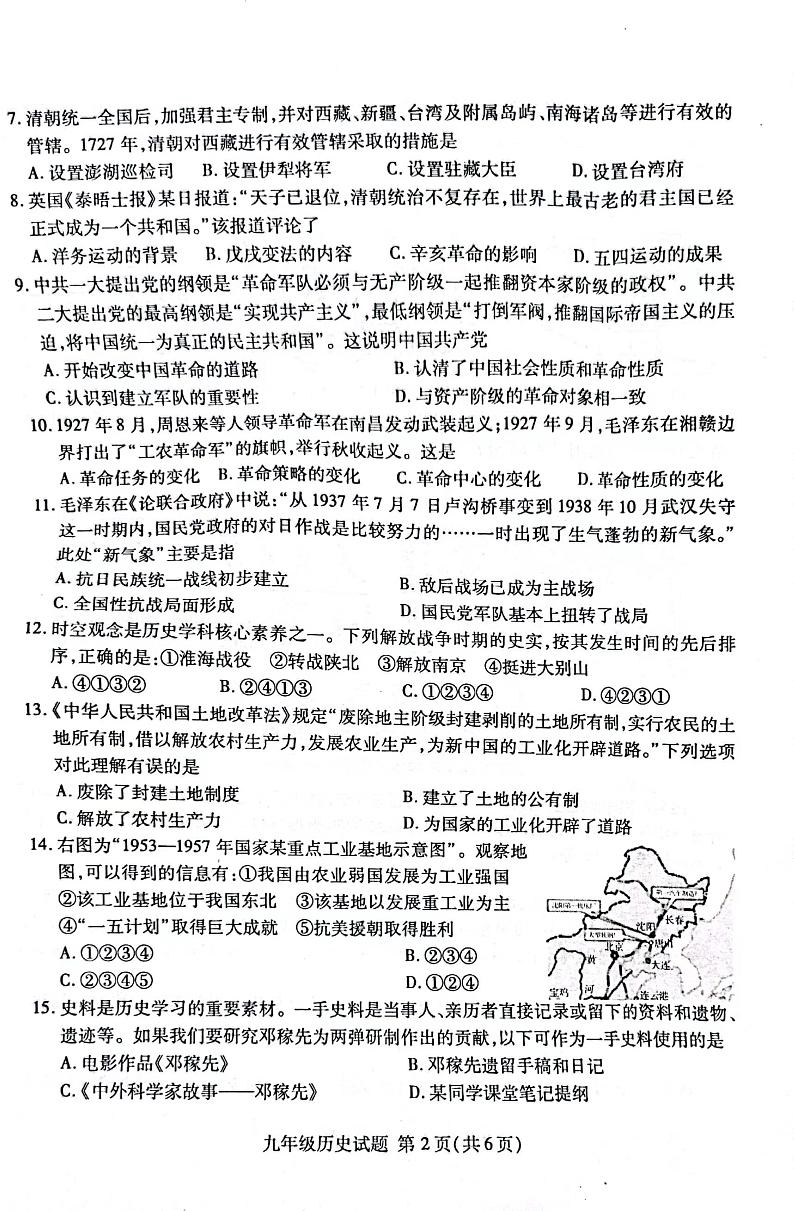 7. 清朝统一全国后,加强君主专制,并对西藏、新疆、台湾及附属岛屿、南海诸岛等进行有效的
管辖。1727 年,清朝对西藏进行有效管辖采取的措施是
A. 设置澎湖巡检司 B. 设置伊犁将军 C. 设置驻藏大臣 D. 设置台湾府
8. 英国《泰晤士报》某日报道:“天子已退位,清朝统治不复存在,世界上最古老的君主国已经
正式成为一个共和国。”该报道评论了
A. 洋务运动的背景 B. 戊戌变法的内容 C. 辛亥革命的影响 D. 五四运动的成果
9. 中共一大提出党的纲领是“革命军队必须与无产阶级一起推翻资本家阶级的政权”。中共
二大提出党的最高纲领是“实现共产主义”,最低纲领是“打倒军阀,推翻国际帝国主义的压
迫,将中国统一为真正的民主共和国”。这说明中国共产党
A. 开始改变中国革命的道路 B. 认清了中国社会性质和革命性质
C. 认识到建立军队的重要性 D. 与资产阶级的革命对象相一致
10. 1927 年 8 月,周恩来等人领导革命军在南昌发动武装起义;1927 年 9 月,毛泽东在湘赣边
界打出了“工农革命军”的旗帜,举行秋收起义。这是
A. 革命任务的变化 B. 革命策略的变化 C. 革命中心的变化 D. 革命性质的变化
11. 毛泽东在《论联合政府》中说:“从 1937 年 7 月 7 日卢沟桥事变到 1938 年 10 月武汉失守
这一时期内,国民党政府的对日作战是比较努力的……一时出现了生气蓬勃的新气象。”
此处“新气象”主要是指
A. 抗日民族统一战线初步建立 B. 敌后战场已成为主战场
C. 全国性抗战局面形成 D. 国民党军队基本上扭转了战局
12. 时空观念是历史学科核心素养之一。下列解放战争时期的史实,按其发生时间的先后排
序,正确的是:①淮海战役 ②转战陕北 ③解放南京 ④挺进大别山
A. ④①③② B. ②④①③ C. ①②③④ D. ④②③①
13. 《中华人民共和国土地改革法》规定“废除地主阶级封建剥削的土地所有制,实行农民的土
地所有制,借以解放农村生产力,发展农业生产,为新中国的工业化开辟道路。”下列选项
对此理解有误的是
A. 废除了封建土地制度 B. 建立了土地的公有制
C. 解放了农村生产力 D. 为国家的工业化开辟了道路
14. 右图为“1953—1957 年国家某重点工业基地示意图”。观察地
图,可以得到的信息有:①我国由农业弱国发展为工业强国
②该工业基地位于我国东北 ③该基地以发展重工业为主
④“一五计划”取得巨大成就 ⑤抗美援朝取得胜利
A. ①②③④ B. ②③④
C. ②③④⑤ D. ①②④
长春
沈阳
鞍山
北京
大连
黄
河
宝鸡
连云港
15. 史料是历史学习的重要素材。一手史料是当事人、亲历者直接记录或留下的资料和遗物、
遗迹等。如果我们要研究邓稼先为两弹研制作出的贡献,以下可作为一手史料使用的是
A. 电影作品《邓稼先》 B. 邓稼先遗留手稿和日记
C. 《中外科学家故事——邓稼先》 D. 某同学课堂笔记提纲
九年级历史试题 第 2 页(共 6 页)